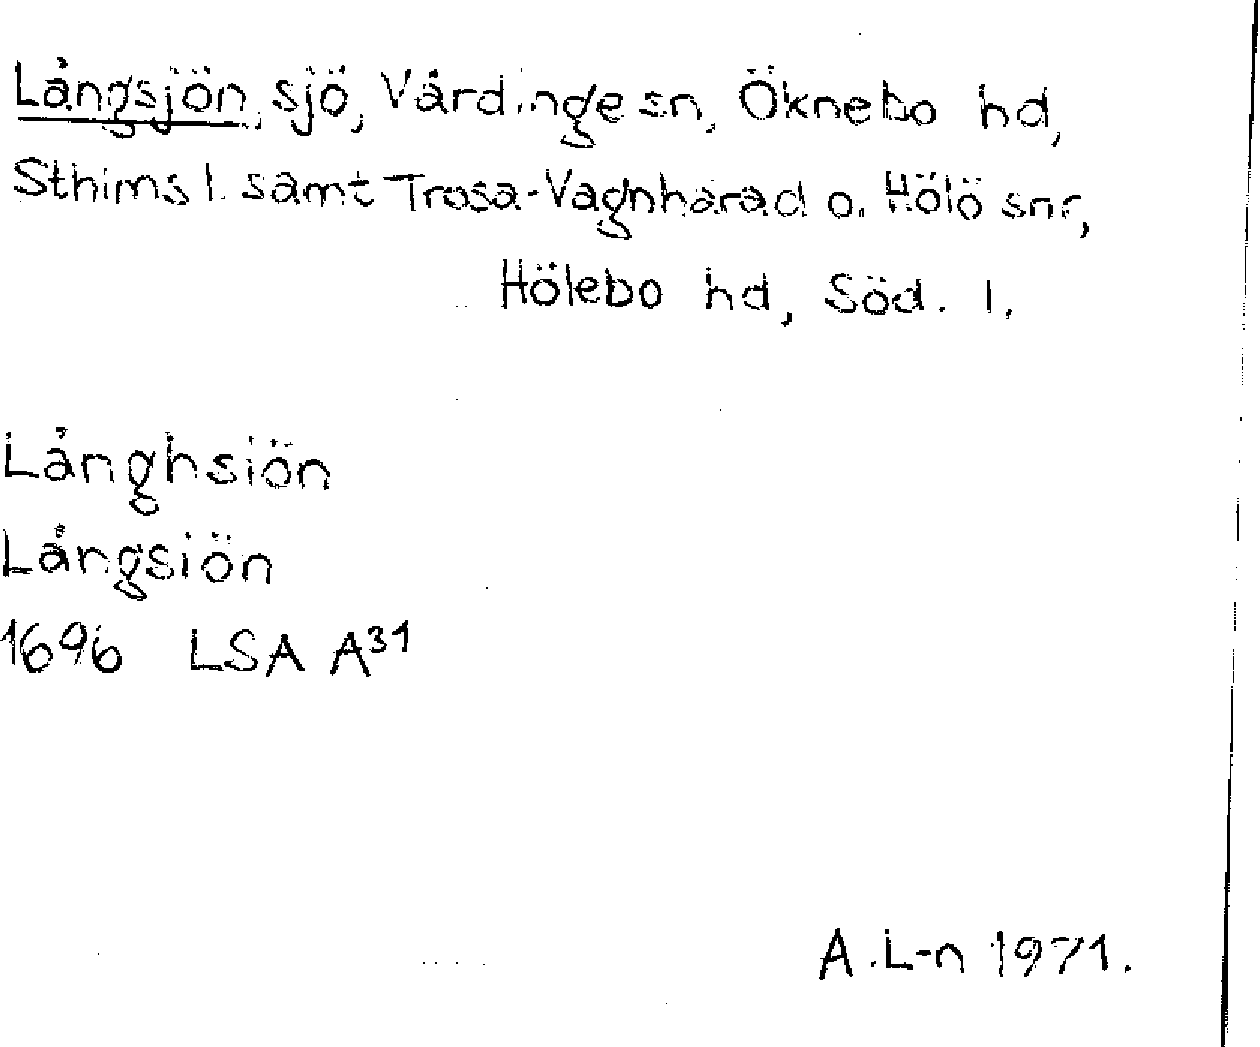 Långsjön, sjö, Vårdinge sn, Öknebo hd,
Sthlms l. samt Trosa-Vagnhärad o. Hölö snr,
Hölebo hd, Söd. l.
Långhsiön
Långsiön
1696 LSA A³¹
A.L-n 1971.